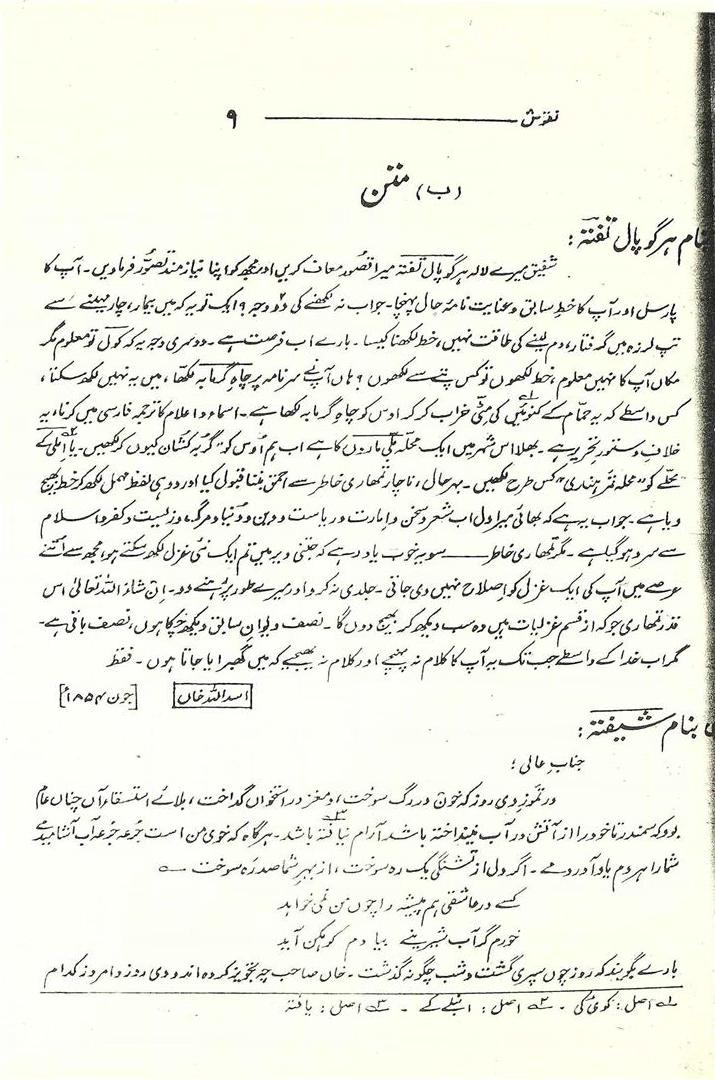 نقوش ـــــــــــــ ۹
(ب) متن
بنام ہرگوپال تفتہ :
شفیق میرے لالہ ہرگوپال تفتہ میرا قصور معاف کریں اور مجھ کو اپنا نیاز مند تصوّر فرماویں۔ آپ کا
پارسل اور آپ کا خط سابق و عنایت نامۂ حال پہنچا۔ جواب نہ لکھنے کی دو وجہ ؟ ایک تو یہ کہ میں بیمار، چار مہینے سے
تپ لرزہ میں گرفتار، دم لینے کی طاقت نہیں، خط لکھنا کیسا۔ بارے اب فرصت ہے۔ دوسری وجہ یہ کہ کول تو معلوم مگر
مکان آپ کا نہیں معلوم، خط لکھوں تو کس پتے سے لکھوں ؟ ہاں آپ نے سرنامہ پر چاہِ گرمابہ لکھا، میں یہ نہیں لکھ سکتا،
کس واسطے کہ یہ حمّام کے کنوئیں کی مٹی خراب کر کہ اوس کو چاہِ گرمابہ لکھا ہے۔ اسماء و اعلام کا ترجمہ فارسی میں کرنا، یہ
خلاف دستورِ تحریر ہے۔ بھلا اس شہر میں ایک محلہ بلی ماروں کا ہے اب ہم اوس کو "گربہ کشان کیوں کر لکھیں۔ یا املی کے
محلے کو "محلہ تمر ہندی" کس طرح لکھیں۔ بہر حال، ناچار تمھاری خاطر سے احمق بننا قبول کیا اور وہی لفظ مہمل لکھ کر خط بھیج
دیا ہے۔ جواب یہ ہے کہ بھائی میرا دل اب شعر و سخن و امارت و ریاست و دین و دنیا و مرگ و زیست و کفر و اسلام
سے سرد ہو گیا ہے۔ مگر تمھاری خاطر ـــــــ سو یہ خوب یاد رہے کہ جتنی دیر میں تم ایک نئی غزل لکھ سکتے ہو، مجھ سے اتنے
عرصے میں آپ کی ایک غزل کو اصلاح نہیں دی جاتی۔ جلدی نہ کرو اور میرے طور پر رہنے دو۔ ان شاء اللہ تعالیٰ اس
قدر تمھاری جو کہ از قسم غزلیات ہیں وہ سب دیکھ کر بھیج دوں گا۔ نصف دیوان سابق دیکھ چکا ہوں، نصف باقی ہے۔
مگر اب خدا کے واسطے جب تک یہ آپ کا کلام نہ پہنچے اور کلام نہ بھیجیے کہ میں گھبرایا جاتا ہوں۔ فقط
اسد اللہ خاں [جون ۱۸۵۴ء]
بنام شیفتہ :
جناب عالی ؛
در تموز دی روز کہ خون در رگ سوخت، و مغز در استخواں گداخت، بلائے استسقاء آں چناں عام
بود کہ سمندر تا خود را از آتش در آب نینداختہ باشد آرام نیافتہ باشد۔ ہرگاہ کہ خوی من است جُرعہ جُرعہ آب آشامیدمے
شما را ہر دم یاد آوردمے۔ اگر دل از تشنگی یک رہ سوخت، از بہرِ شما صد رہ سوخت
کسے در عاشقی ہم پیشہ را چوں من نمی خواہد
خورم گر آب شیرینے بیادم کوہکن آید
بارے بگویند کہ روز چوں سپری گشت و شب چگونہ گذشت۔ خاں صاحب چہ تجویز کردہ اند و دی روز و امروز کدام
۱؎ اصل : کوی کی ۔ ۲؎ اصل : انبلے کے ۔ ۳؎ اصل : یافتہ